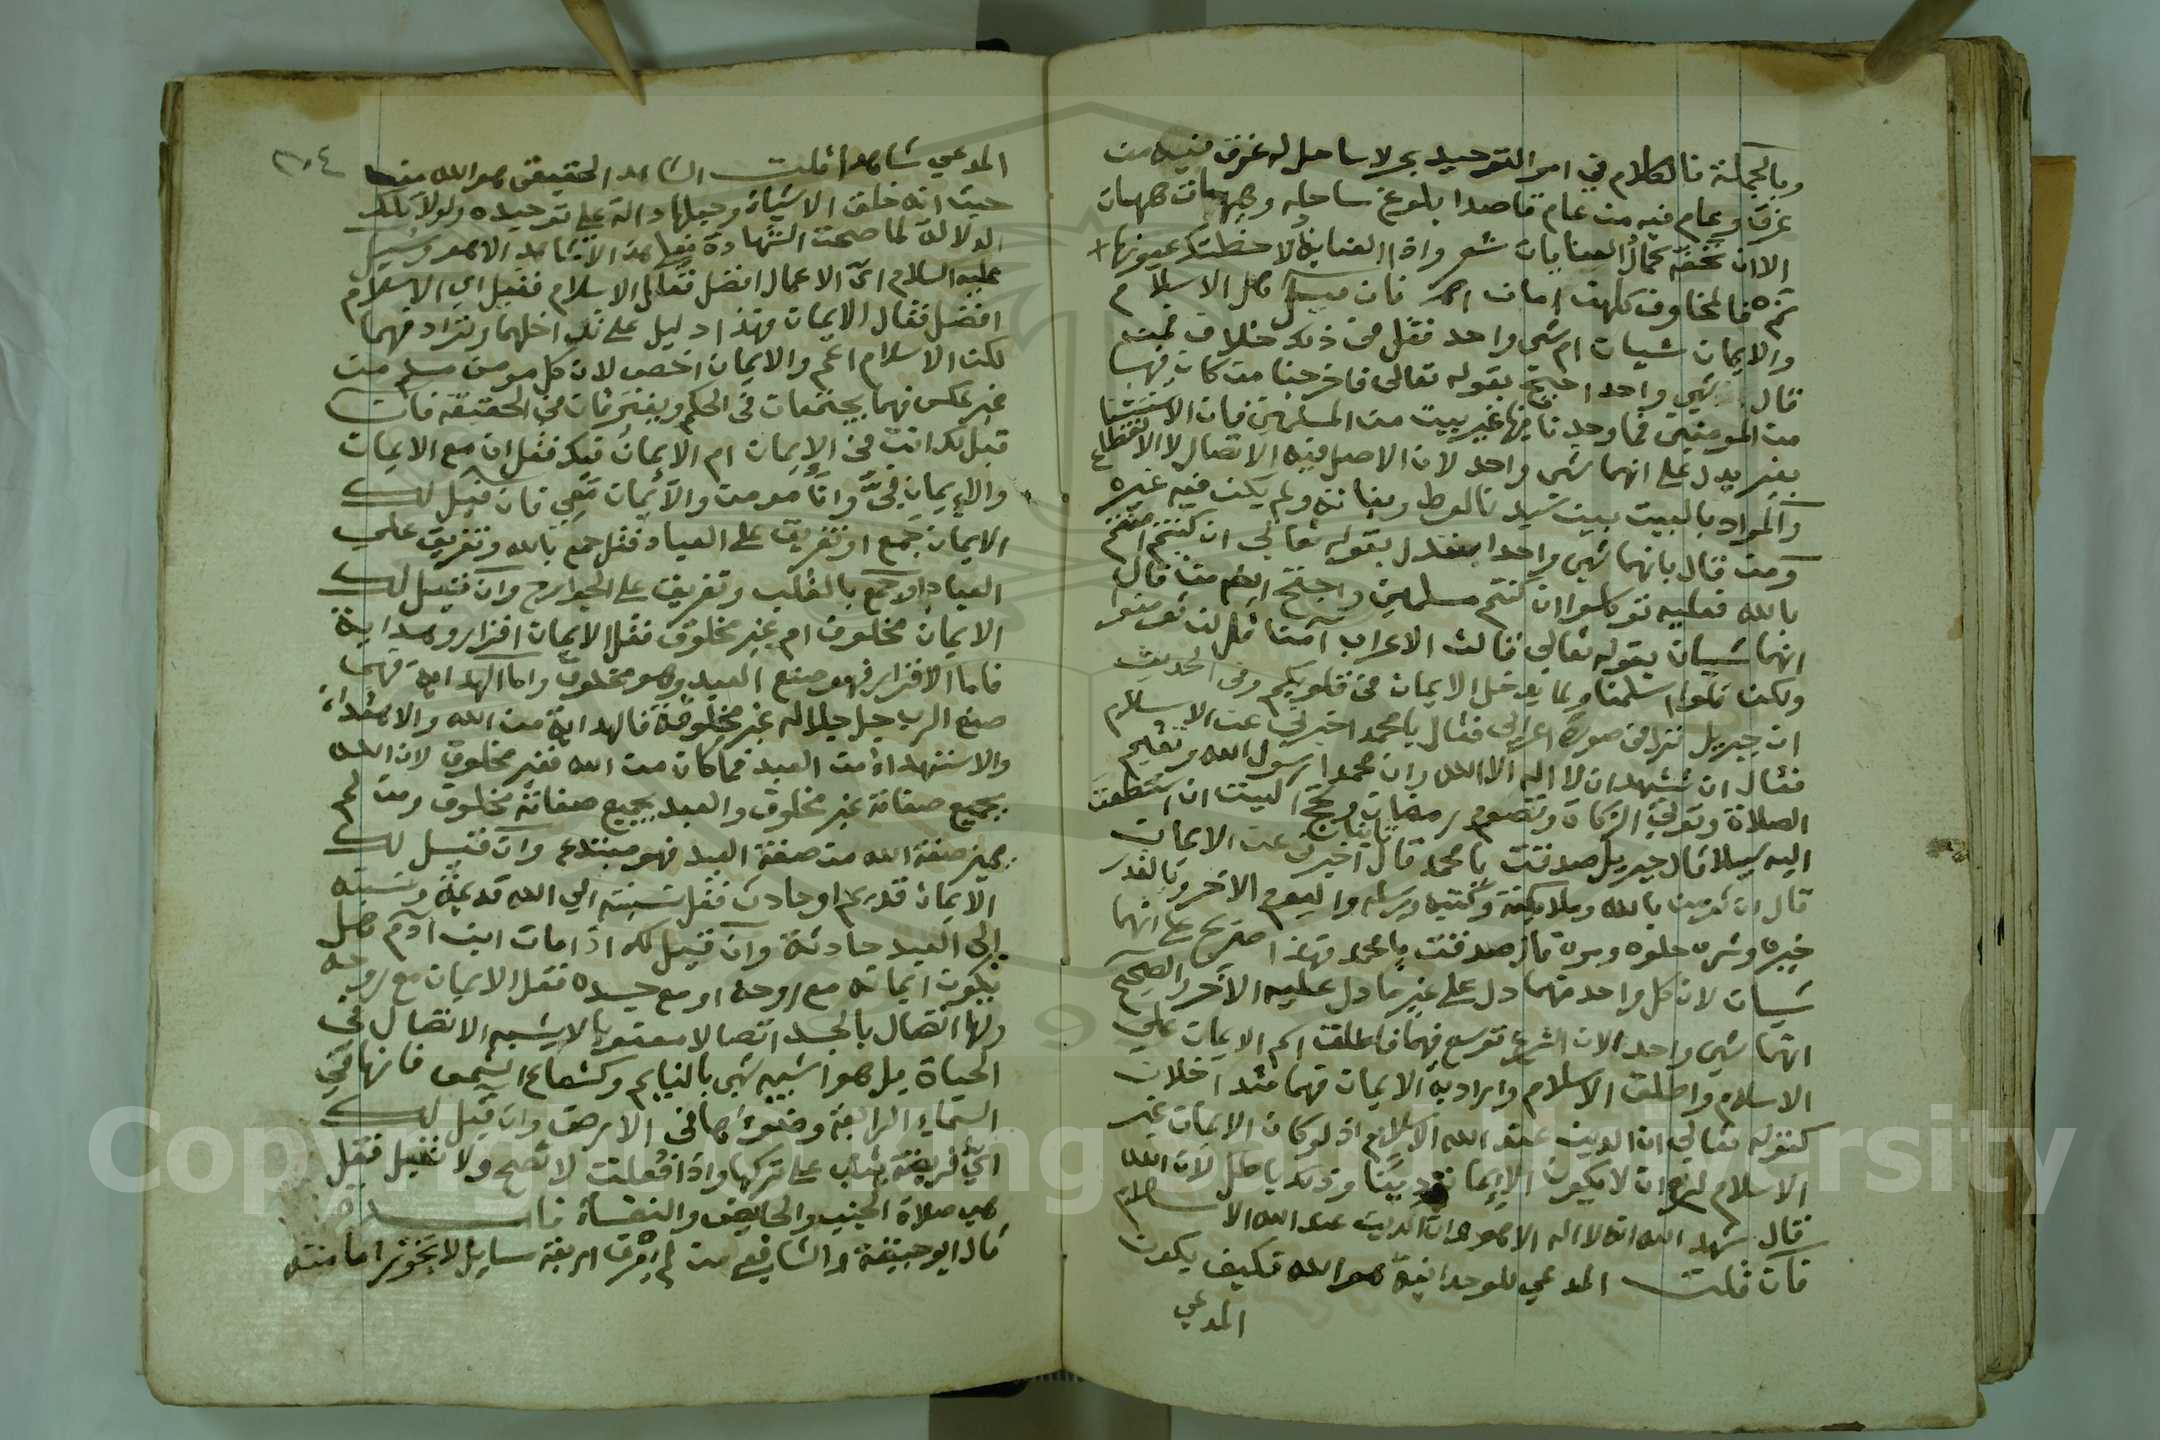 وبالجملة فالكلام في امر التوحيد بحر لا ساحل له غرق فيه من
غرق وعام فيه من عام قاصدا بلوغ ساحله وهيهات هيهات
الا ان تحفه العنايات شعر واذا العناية لاحظتك عيونها
نم فالمخاوف كلهن امان اهـ فان قيل هل الاسلام
والايمان شيان ام شي واحد فقل في ذلك خلاف فمن
قال شي واحد احتج بقوله تعالى فاخرجنا من كان فيها
من المومنين فما وجدنا فيها غير بيت من المسلمين فان الاستثنا
بغير يدل على انهما شي واحد لان الاصل فيه الاتصال لا الانقطاع
والمراد بالبيت بيت سيدنا لوط وبناته ولم يكن فيه غيره
ومن قال بانهما شي واحد استدل بقوله تعالى ان كنتم امنتم
بالله فعليه توكلوا ان كنتم مسلمين واحتج ايضا من قال
انهما شيان بقوله تعالى قالت الاعراب آمنا قل لن تومنوا
ولكن قولوا اسلمنا ولما يدخل الايمان في قلوبكم وفي الحديث
ان جبريل نزل في صورة اعرابي فقال يا محمد اخبرني عن الاسلام
فقال ان تشهد ان لا اله الا الله وان محمدا رسول الله وتقيم
الصلاة وتوتي الزكاة وتصوم رمضان وتحج البيت ان استطعت
اليه سبيلا قال جبريل صدقت يا محمد قال اخبرني عن الايمان
قال ان تومن بالله وملايكته وكتبه ورسله واليوم الاخر وبالقدر
خيره وشره حلوه ومره قال صدقت يا محمد فهذا صريح على انهما
شيان لان كل واحد منهما دل على غير ما دل عليه الآخر والصحيح
انهما شي واحد الا ان الشرع توسع فيهما فاطلق اسم الايمان على
الاسلام واطلق الاسلام واراد به الايمان فهما متداخلان
كقوله تعالى ان الدين عند الله الاسلام اذ لو كان الايمان غير
الاسلام لزم ان لا يكون الايمان دينا وذلك باطل لان الله
قال شهد الله انه لا اله الا هو وان الدين عند الله الاسلام
فان قلت المدعي للوحدانية هو الله فكيف يكون
المدعي
٣٠٤
المدعي شاهدا قلت الشاهد الحقيقي هو الله من
حيث انه خلق الاشياء وجعلها دالة على توحيده ولولا تلك
الدلالة لما صحت الشهادة الا هو وسيل
عليه السلام اي الاعمال افضل فقال الاسلام فقيل اي الاسلام
افضل فقال الايمان وهذا دليل على تداخلهما وترادفهما
لكن الاسلام اعم والايمان اخص لان كل مومن مسلم من
غير عكس فهما يجتمعان في الحكم ويفترقان في الحقيقة فان
قيل لك انت في الايمان ام الايمان فيك فقل انا مع الايمان
والايمان في وانا مومن والايمان معي فان قيل لك
الايمان جمع او تفريق على العباد فقل جمع بالله وتفريق على
العباد او جمع بالقلب وتفريق على الجوارح وان قيل لك
الايمان مخلوق ام غير مخلوق فقل الايمان اقرار وهداية
فاما الاقرار فهو صنع العبد وهو مخلوق واما الهداية فهي
صنع الرب جل جلاله غير مخلوقة فالهداية من الله والاهتداء
والاستهداء من العبد فما كان من الله فغير مخلوق لان الله
بجميع صفاته غير مخلوق والعبد بجميع صفاته مخلوق ومن لم
يميز صفة الله من صفة العبد فهو مبتدع وان قيل لك
الايمان قديم او حادث فقل نسبته الى الله قديمة ونسبته
الى العبد حادثة وان قيل لك اذا مات ابن آدم هل
يكون ايمانه مع روحه او مع جسده فقل الايمان مع روحه
ولها اتصال بالجسد اتصالا معنويا لا يشبه الاتصال في
الحياة بل هو اشبه شي بالنايم وكشعاع الشمس فانها في
السماء الرابعة وضوءها في الارض وان قيل لك
اي فريضة يثاب على تركها واذا فعلت لا تصح ولا تقبل فقل
هي صلاة الجنب والحايض والنفساء
قال ابو حنيفة والشافعي من لم يعرف اربعة مسايل لا تجوز امامته
Copyright © King Saud University